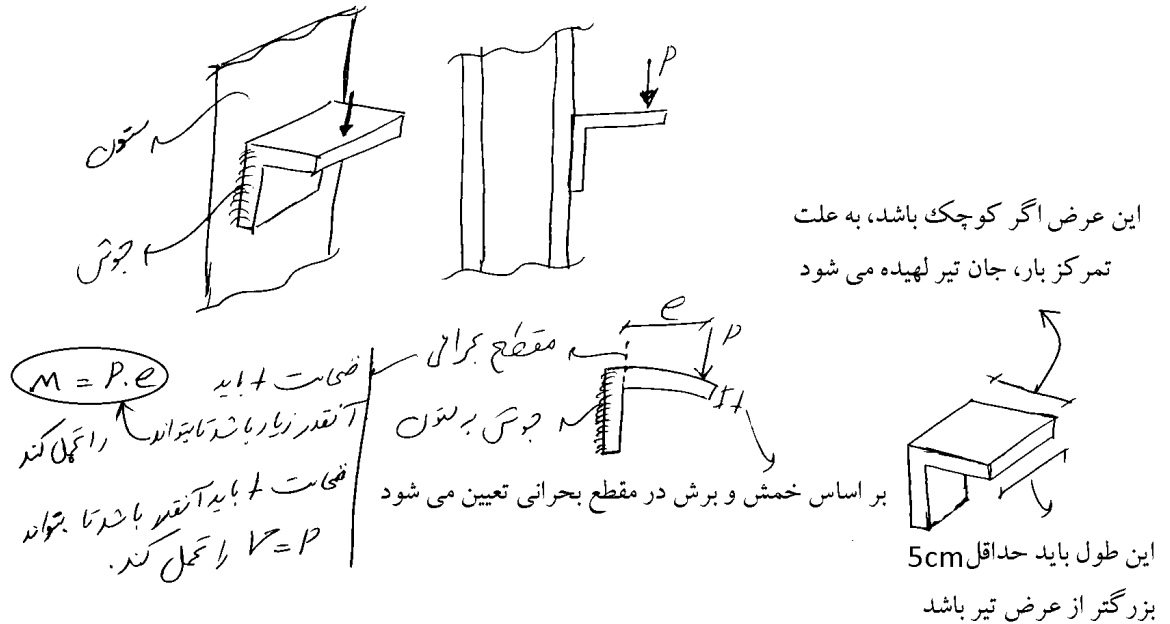 ستون
جوش
P
این عرض اگر کوچک باشد، به علت
تمرکز بار، جان تیر لهیده می شود
e
P
t
مقطع بحرانی
جوش به ستون
M = P.e
ضخامت t باید
آنقدر زیاد باشد تا بتواند را تحمل کند
ضخامت t باید آنقدر باشد تا بتواند
V=P را تحمل کند.
بر اساس خمش و برش در مقطع بحرانی تعیین می شود
این طول باید حداقل 5cm
بزرگتر از عرض تیر باشد